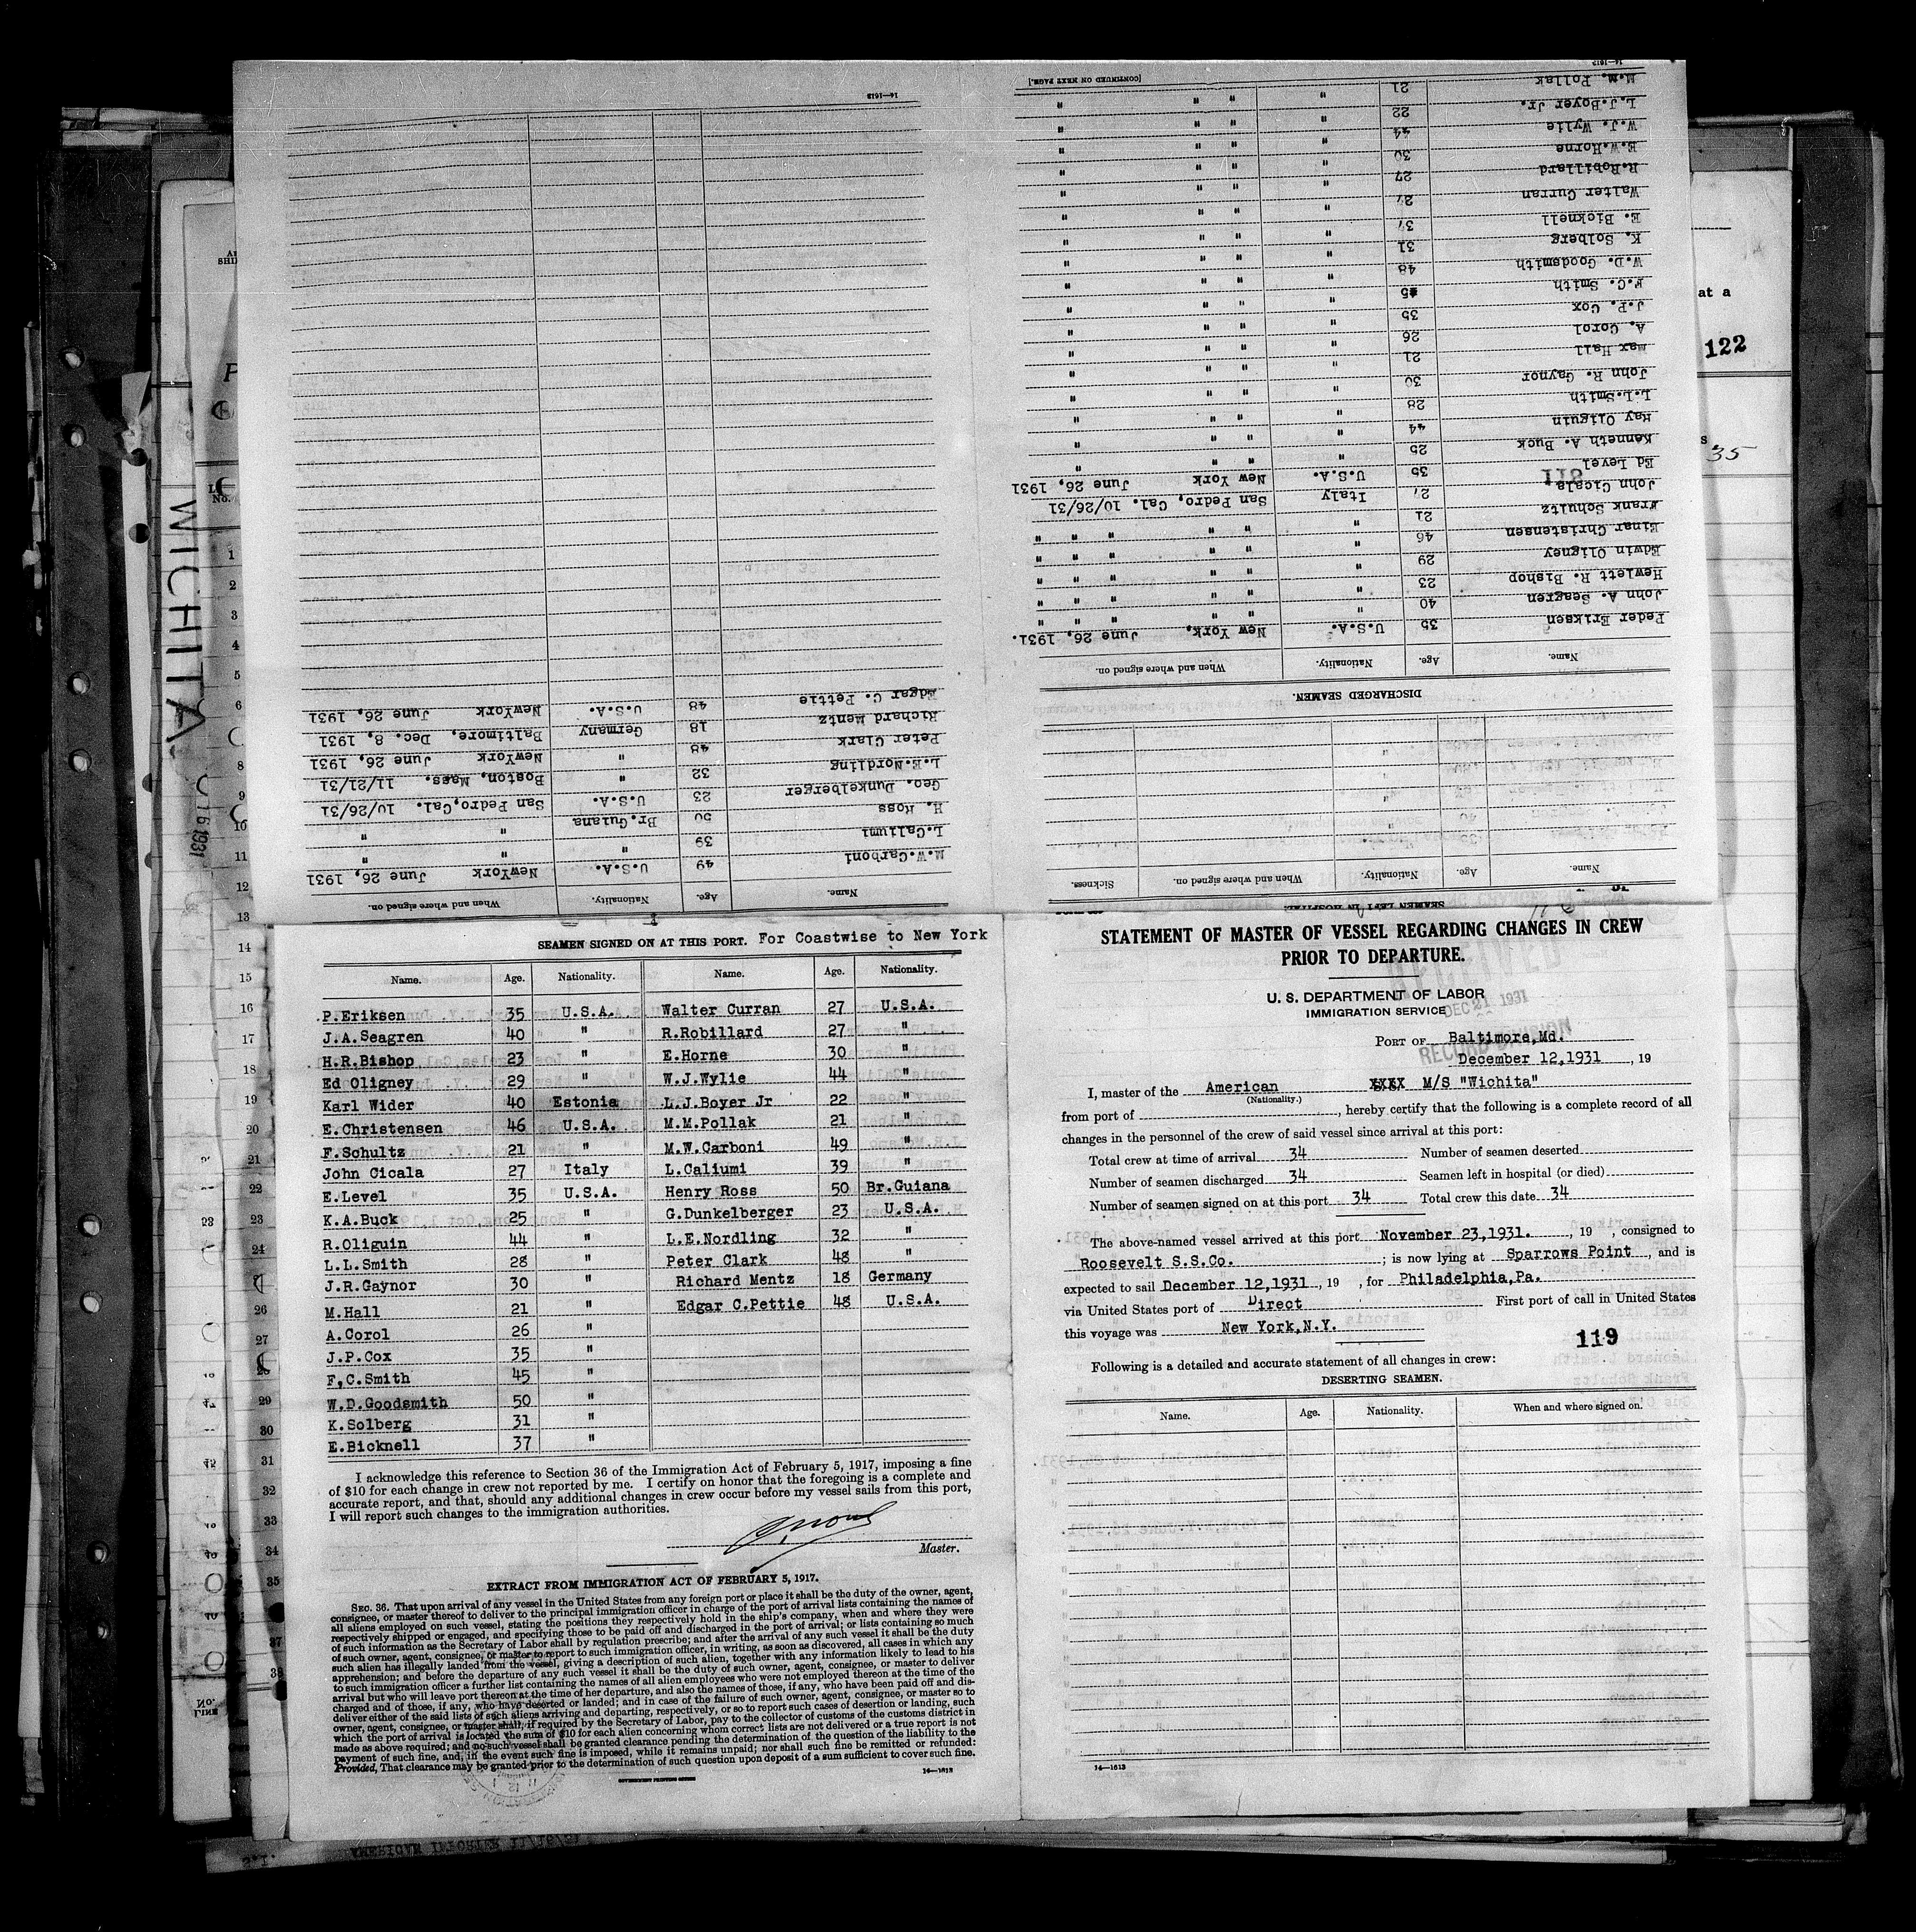 STATEMENT OF MASTER OF VESSEL REGARDING CHANGES IN CREW
PRIOR TO DEPARTURE.
U. S. DEPARTMENT OF LABOR
IMMIGRATION SERVICE
DEC 21 1931
RECORD DIVISION
PORT OF Baltimore,Md.
December 12,1931, 19
I, master of the American XXXX M/S "Wichita"
(Nationality.)
from port of , hereby certify that the following is a complete record of all
changes in the personnel of the crew of said vessel since arrival at this port:
Total crew at time of arrival 34 Number of seamen deserted
Number of seamen discharged 34 Seamen left in hospital (or died)
Number of seamen signed on at this port 34 Total crew this date 34
The above-named vessel arrived at this port November 23,1931. , 19 , consigned to
Roosevelt S.S.Co. ; is now lying at Sparrows Point , and is
expected to sail December 12,1931 , 19 , for Philadelphia,Pa.
via United States port of Direct First port of call in United States
this voyage was New York,N.Y.
119
Following is a detailed and accurate statement of all changes in crew:
DESERTING SEAMEN.
Name. Age. Nationality. When and where signed on.
14—1613
SEAMEN LEFT IN HOSPITAL.
Name. Age. Nationality. When and where signed on. Sickness.
DISCHARGED SEAMEN.
Name. Age. Nationality. When and where signed on.
Peder Eriksen 35 U.S.A. New York, June 26, 1931.
John A. Seagren 40 " " " " " "
Hewlett R. Bishop 23 " " " " " "
Edwin Oligney 29 " " " " " "
Einar Christensen 46 " " " " " "
Frank Schultz 21 " " " " " "
John Cicala 27 Italy San Pedro, Cal. 10/26/31
118
Ed Level 35 U.S.A. New York June 26, 1931
Kenneth A. Buck 25 " " " "
Ray Oliguin 44 " " " "
L.L.Smith 28 " " " "
John R. Gaynor 30 " " " "
Max Hall 21 " " " "
A. Corol 26 " " " "
J.P. Cox 35 " " " "
F.C. Smith 45 " " " "
W.D. Goodsmith 48 " " " "
K. Solberg 31 " " " "
E. Bicknell 37 " " " "
Walter Curran 27 " " " "
R.Robillard 27 " " " "
E.W.Horne 30 " " " "
W.J. Wylie 44 " " " "
L.J.Boyer Jr. 22 " " " "
M.M. Pollak 21 " " " "
[CONTINUED ON NEXT PAGE.]
14—1613
Name. Age. Nationality. When and where signed on.
M.W.Carboni 49 U.S.A. NewYork June 26, 1931
L.Caliumi 39 " " "
H. Ross 50 Br.Guiana " "
Geo. Dunkelberger 23 U.S.A. San Pedro,Cal. 10/26/31
L.E.Nordling 32 " Boston, Mass. 11/21/31
Peter Clark 48 " NewYork June 26, 1931
Richard Mentz 18 Germany Baltimore, Dec. 8, 1931
Edgar C. Pettie 48 U.S.A. NewYork June 26, 1931
14—1613
SEAMEN SIGNED ON AT THIS PORT. For Coastwise to New York
Name. Age. Nationality. Name. Age. Nationality.
P.Eriksen 35 U.S.A. Walter Curran 27 U.S.A.
J.A.Seagren 40 " R.Robillard 27 "
H.R.Bishop 23 " E.Horne 30 "
Ed Oligney 29 " W.J.Wylie 44 "
Karl Wider 40 Estonia L.J.Boyer Jr 22 "
E.Christensen 46 U.S.A. M.M.Pollak 21 "
F.Schultz 21 " M.W.Carboni 49 "
John Cicala 27 Italy L.Caliumi 39 "
E.Level 35 U.S.A. Henry Ross 50 Br.Guiana
K.A.Buck 25 " G.Dunkelberger 23 U.S.A.
R.Oliguin 44 " L.E.Nordling 32 "
L.L.Smith 28 " Peter Clark 48 "
J.R.Gaynor 30 " Richard Mentz 18 Germany
M.Hall 21 " Edgar C.Pettie 48 U.S.A.
A.Corol 26 "
J.P.Cox 35 "
F,C.Smith 45 "
W.D.Goodsmith 50 "
K.Solberg 31 "
E.Bicknell 37 "
I acknowledge this reference to Section 36 of the Immigration Act of February 5, 1917, imposing a fine
of $10 for each change in crew not reported by me. I certify on honor that the foregoing is a complete and
accurate report, and that, should any additional changes in crew occur before my vessel sails from this port,
I will report such changes to the immigration authorities.
Master.
EXTRACT FROM IMMIGRATION ACT OF FEBRUARY 5, 1917.
SEC. 36. That upon arrival of any vessel in the United States from any foreign port or place it shall be the duty of the owner, agent,
consignee, or master thereof to deliver to the principal immigration officer in charge of the port of arrival lists containing the names of
all aliens employed on such vessel, stating the positions they respectively hold in the ship's company, when and where they were
respectively shipped or engaged, and specifying those to be paid off and discharged in the port of arrival; or lists containing so much
of such information as the Secretary of Labor shall by regulation prescribe; and after the arrival of any such vessel it shall be the duty
of such owner, agent, consignee, or master to report to such immigration officer, in writing, as soon as discovered, all cases in which any
such alien has illegally landed from the vessel, giving a description of such alien, together with any information likely to lead to his
apprehension; and before the departure of any such vessel it shall be the duty of such owner, agent, consignee, or master to deliver
to such immigration officer a further list containing the names of all alien employees who were not employed thereon at the time of the
arrival but who will leave port thereon at the time of her departure, and also the names of those, if any, who have been paid off and dis-
charged and of those, if any, who have deserted or landed; and in case of the failure of such owner, agent, consignee, or master so to
deliver either of the said lists of such aliens arriving and departing, respectively, or so to report such cases of desertion or landing, such
owner, agent, consignee, or master shall, if required by the Secretary of Labor, pay to the collector of customs of the customs district in
which the port of arrival is located the sum of $10 for each alien concerning whom correct lists are not delivered or a true report is not
made as above required; and no such vessel shall be granted clearance pending the determination of the question of the liability to the
payment of such fine, and, in the event such fine is imposed, while it remains unpaid; nor shall such fine be remitted or refunded:
Provided, That clearance may be granted prior to the determination of such question upon deposit of a sum sufficient to cover such fine.
GOVERNMENT PRINTING OFFICE
14—1613
WICHITA
at a
122
35
AMERICAN IMPORTER 11/16/31